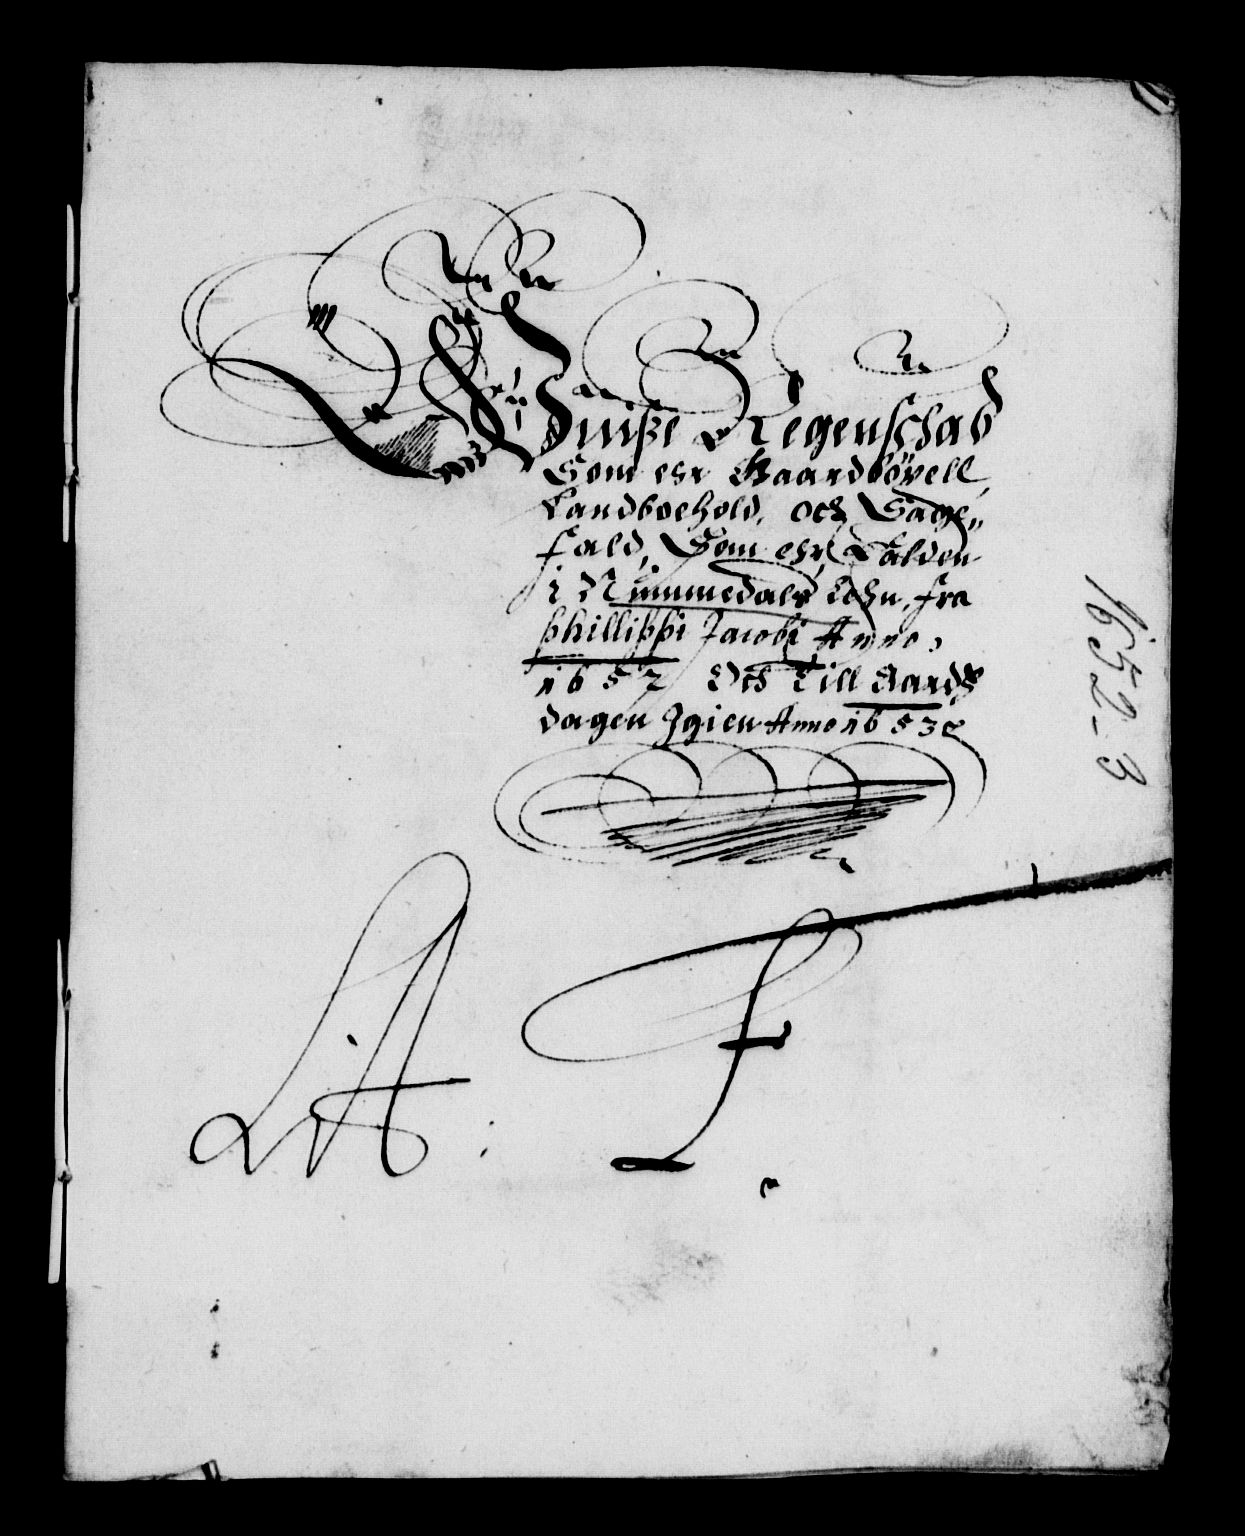 Wüiße Regenschab
Som ehr Gaardbövell,
Landboehold, och Sage„
fald, Som ehr Falden
i Nummedals Lehn, fra
phillippi Jacobi Anno
1652 Och Till Aars
dagen Igien Anno 1653
Lit A: F.
1652-3